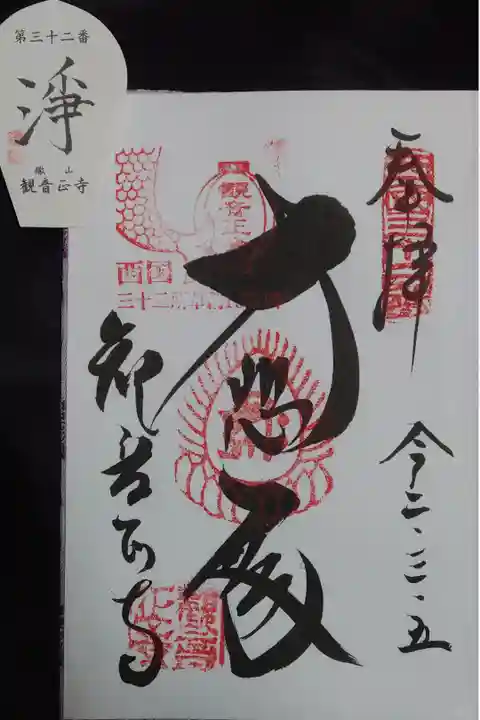 第三十二番
淨
繖山
観音正寺
奉拝
令二、三、五
大悲殿
観音正寺
観音正寺
西国
三十二